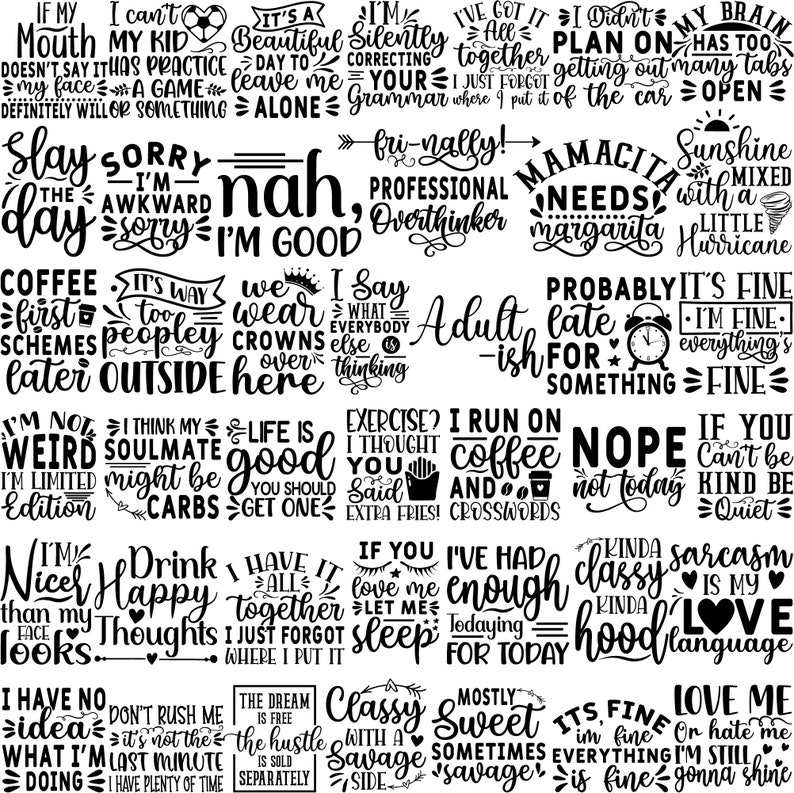 IF MY
Mouth
DOESN'T SAY IT
my face
DEFINITELY WILL
I can't
MY KID
HAS PRACTICE
A GAME
OR SOMETHING
IT'S A
Beautiful
DAY TO
leave me
ALONE
I'M
Silently
CORRECTING
YOUR
Grammar
I'VE GOT IT
All
together
I JUST FORGOT
where I put it
I Didn't
PLAN ON
getting out
of the car
MY BRAIN
HAS TOO
many tabs
OPEN
Slay
THE
day
SORRY
I'M
AWKWARD
sorry
nah,
I'M GOOD
fri-nally!
PROFESSIONAL
Overthinker
MAMACITA
NEEDS
margarita
Sunshine
MIXED
with a
LITTLE
Hurricane
COFFEE
first
SCHEMES
later
IT'S WAY
too
peopley
OUTSIDE
we
wear
CROWNS
over
here
I Say
WHAT
EVERYBODY
else IS
thinking
Adult
-ish
PROBABLY
late
FOR
SOMETHING
IT'S FINE
I'M FINE
everything's
FINE
I'M NOT
WEIRD
I'M LIMITED
Edition
I THINK MY
SOULMATE
might be
CARBS
LIFE IS
good
YOU SHOULD
GET ONE
EXERCISE?
I THOUGHT
YOU
Said
EXTRA FRIES!
I RUN ON
coffee
AND
CROSSWORDS
NOPE
not today
IF YOU
Can't be
KIND BE
Quiet
I'M
Nicer
than my
FACE
looks
Drink
Happy
Thoughts
I HAVE IT
ALL
together
I JUST FORGOT
WHERE I PUT IT
IF YOU
love me
LET ME
sleep
I'VE HAD
enough
Todaying
FOR TODAY
KINDA
classy
KINDA
hood
sarcasm
IS MY
LOVE
language
I HAVE NO
idea
WHAT I'M
DOING
DON'T RUSH ME
it's not the
LAST MINUTE
I HAVE PLENTY OF TIME
THE DREAM
IS FREE
the hustle
IS SOLD
SEPARATELY
Classy
WITH A
Savage
SIDE
MOSTLY
Sweet
SOMETIMES
savage
ITS, FINE
im fine
EVERYTHING
is fine
LOVE ME
Or hate me
I'M STILL
gonna shine